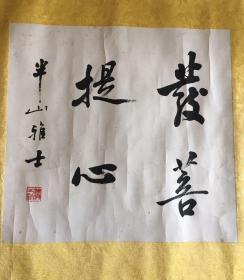 發菩
提心
半山雅士